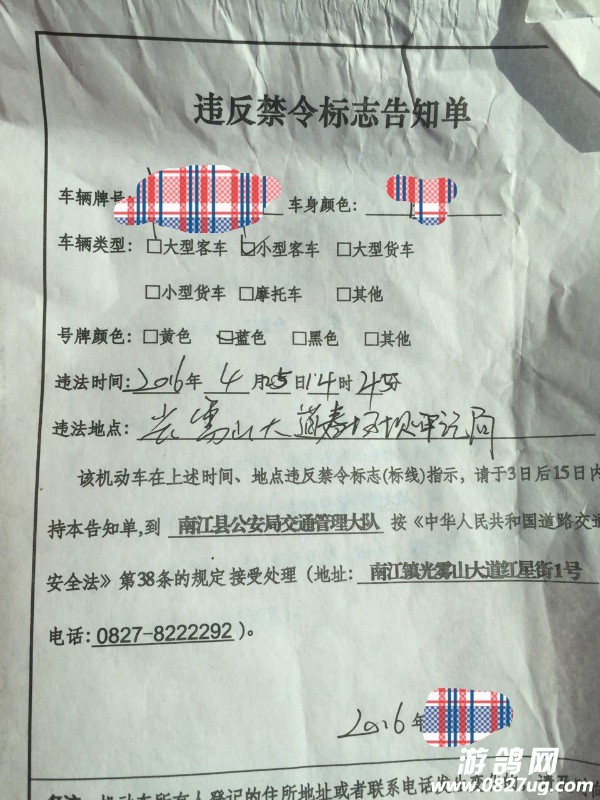 违反禁令标志告知单
车辆牌号: 车身颜色:
车辆类型: □大型客车 □小型客车 □大型货车
□小型货车 □摩托车 □其他
号牌颜色: □黄色 □蓝色 □黑色 □其他
违法时间: 2016年 4 月25日14时45分
违法地点: 光雾山大道春场坝 局
该机动车在上述时间、地点违反禁令标志(标线)指示，请于3日后15日内
持本告知单,到 南江县公安局交通管理大队 按《中华人民共和国道路交通
安全法》第38条的规定接受处理（地址: 南江镇光雾山大道红星街1号
电话: 0827-8222292 )。
2016年
游鸽网
www.0827ug.com
机动车所有人登记的住所地址或者联系电话发生变